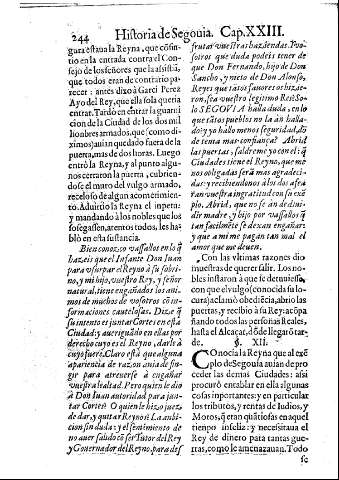 244 Historia de Segouia. Cap. XXIII.
gura estaua la Reyna, que cõsin-
tio en la entrada contra el Con-
sejo de los señores que la assistiã,
que todos eran de contrario pa-
recer: antes dixo a Garci Perez
Ayo del Rey, que ella sola queria
entrar. Tardò en entrar la guarni
cion de la Ciudad de los dos mil
hombres armados, que (como di-
ximos) auian quedado fuera de la
puerta, mas de dos horas. Luego
entrò la Reyna, y al punto algu-
nos cerraron la puerta, cubrien-
dose el muro del vulgo armado,
receloso de algun acometimien-
to. Aduirtiò la Reyna el impetu:
y mandando a los nobles que los
sosegassen, atentos todos, les ha-
blò en esta sustancia.
Bien conozco vassallos en lo q̃
hazeis que el Infante Don Iuan
para vsurpar el Reyno à su sobri-
no, y mi hijo, vuestro Rey, y señor
natural, tiene engañados los ani-
mos de muchos de vosotros cõ in-
formaciones cautelosas. Dize q̃
su intento es juntar Cortes en està
Ciudad; y aueriguado en ellas por
derecho cuyo es el Reyno, darle à
cuyo fuere. Claro està que alguna
apariencia de razon auia de fin-
gir para atreuerse à engañar
vuestra lealtad. Pero quien le dio
A Don Iuan autoridad para jun-
tar Cortes? O quien le hizo juez
de dar, y quitar Reynos? La ambi-
cion sin duda: y el sentimiento de
no auer salido cõ ser Tutor del Rey
y Gouernador del Reyno, para des
frutar vuestras haziendas. Vos-
otros que duda podeis tener de
que Don Fernando, hijo de Don
Sancho, y nieto de Don Alonso,
Reyes que tãtos fauores os hizie-
ron, sea vuestro legitimo Rei? So-
lo SEGOVIA halla duda, en lo
que tãtos pueblos no la àn halla-
do: y yo hallo menos seguridad, dõ
de tenia mas confiança? Abrid
las puertas, saldreme yo con el: q̃
Ciudades tiene el Reyno, que me-
nos obligadas serà mas agradeci-
das: y recibiendonos à los dos afea
ràn vuestra ingratitud con su exẽ
plo. Abrid, que no se àn de diui-
dir madre, y hijo por vassallos q̃
tan facilmẽte se dexan engañar:
y que à mi me pagan tan mal el
amor que me deuen.
Con las vltimas razones dio
muestras de querer salir. Los no-
bles instaron à que se detuuiesse,
con que el vulgo (conocida su lo
cura) aclamò obediẽcia, abrio las
puertas, y recibio à su Rey: acopa
ñando todos las personas Reales,
hasta el Alcaçar, dõ de llegarõ tar
de.
§. XII.
COnocia la Reyna que al exẽ
plo de Segouia auian de pro
ceder las demas Ciudades: assi
procurò entablar en ella algunas
cosas importantes; y en particular
los tributos, y rentas de Iudios, y
Moros, q̃ eran quãtiosas en aquel
tiempo infeliz: y necessitaua el
Rey de dinero para tantas gue-
rras, como le amenazauan. Todo
se